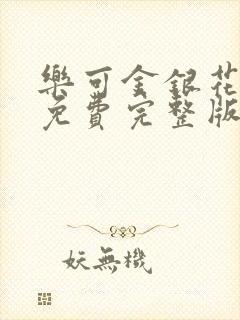 樂可金銀花
免費完整版
妖無機